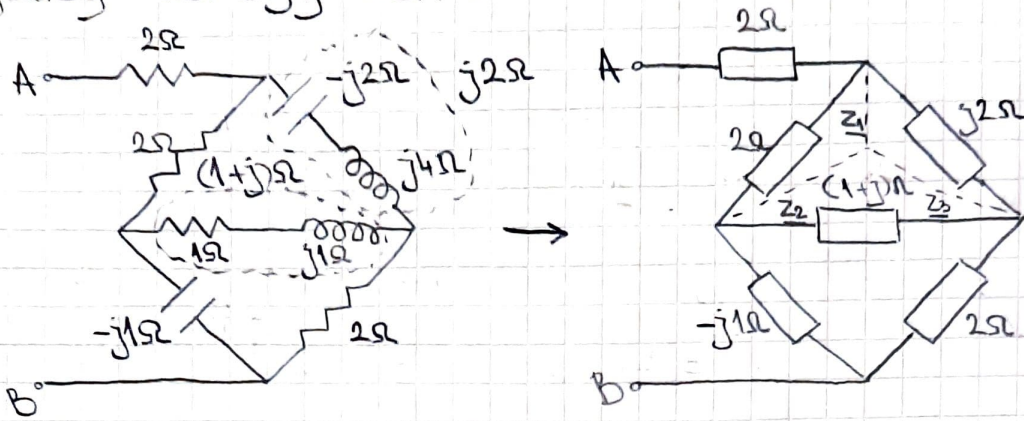 2Ω
A
-j2Ω
j2Ω
2Ω
(1+j)Ω
j4Ω
1Ω
j1Ω
-j1Ω
2Ω
B
2Ω
A
2Ω
Z1
j2Ω
(1+j)Ω
Z2
Z3
-j1Ω
2Ω
B